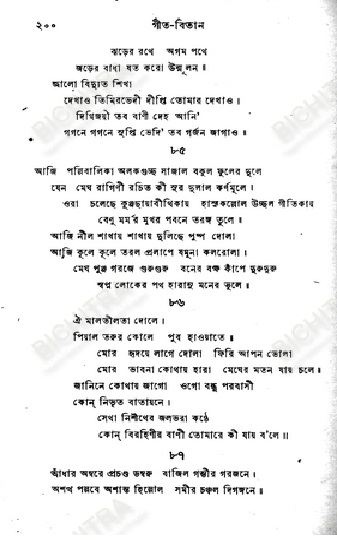 ২০০ গীত-বিতান
ঝড়ের রথে অগম পথে
জড়ের বাধা যত করো উন্মূলন ॥
আলো বিদ্যুত শিখা
দেখাও তিমিরভেদী দীপ্তি তোমার দেখাও।
দিগ্বিজয়ী তব বাণী দেহ আনি'
গগনে গগনে সুপ্তি ভেদি' তব গর্জন জাগাও ॥
৮৫
আজি পল্লিবালিকা অলকগুচ্ছ সাজাল বকুল ফুলের দুলে
যেন মেঘ রাগিণী রচিত কী সুর দুলাল কর্ণমূলে।
ওরা চলেছে কুঞ্জছায়াবীথিকায় হাস্যকল্লোল উছল গীতিকায়
বেণু মর্মর মুখর পবনে তরঙ্গ তুলে ॥
আজি নীল শাখায় শাখায় দুলিছে পুষ্প দোলা
আজি কূলে কূলে তরল প্রলাপে যমুনা কলরোলা।
মেঘ পুঞ্জ গরজে গুরুগুরু বনের বক্ষ কাঁপে দুরুদুরু
স্বপ্ন লোকের পথ হারানু মনের ভুলে ॥
৮৬
ঐ মালতীলতা দোলে।
পিয়াল তরুর কোলে পুব হাওয়াতে ॥
মোর হৃদয়ে লাগে দোলা ফিরি আপন ভোলা
মোর ভাবনা কোথায় হারা মেঘের মতন যায় চলে।
জানিনে কোথায় জাগো ওগো বন্ধু পরবাসী
কোন্ নিভৃত বাতায়নে।
সেথা নিশীথের জলভরা কণ্ঠে
কোন্ বিরহিণীর বাণী তোমারে কী যায় ব'লে ॥
৮৭
আঁধার অম্বরে প্রচণ্ড ডম্বরু বাজিল গম্ভীর গরজনে।
অশত্থ পল্লবে অশান্ত হিল্লোল সমীর চঞ্চল দিগঙ্গনে।
BICHITRA